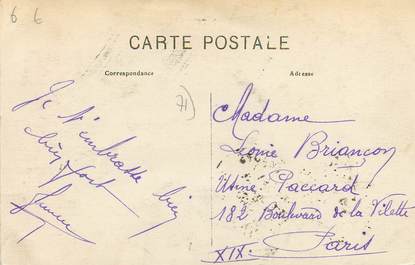 6 6
CARTE POSTALE
Correspondance
Adresse
71
Je t'embrasse bien
bien fort
Madame
Léonie Briançon
Usine Paccard
182 Boulevard de la Villette
Paris
XIX